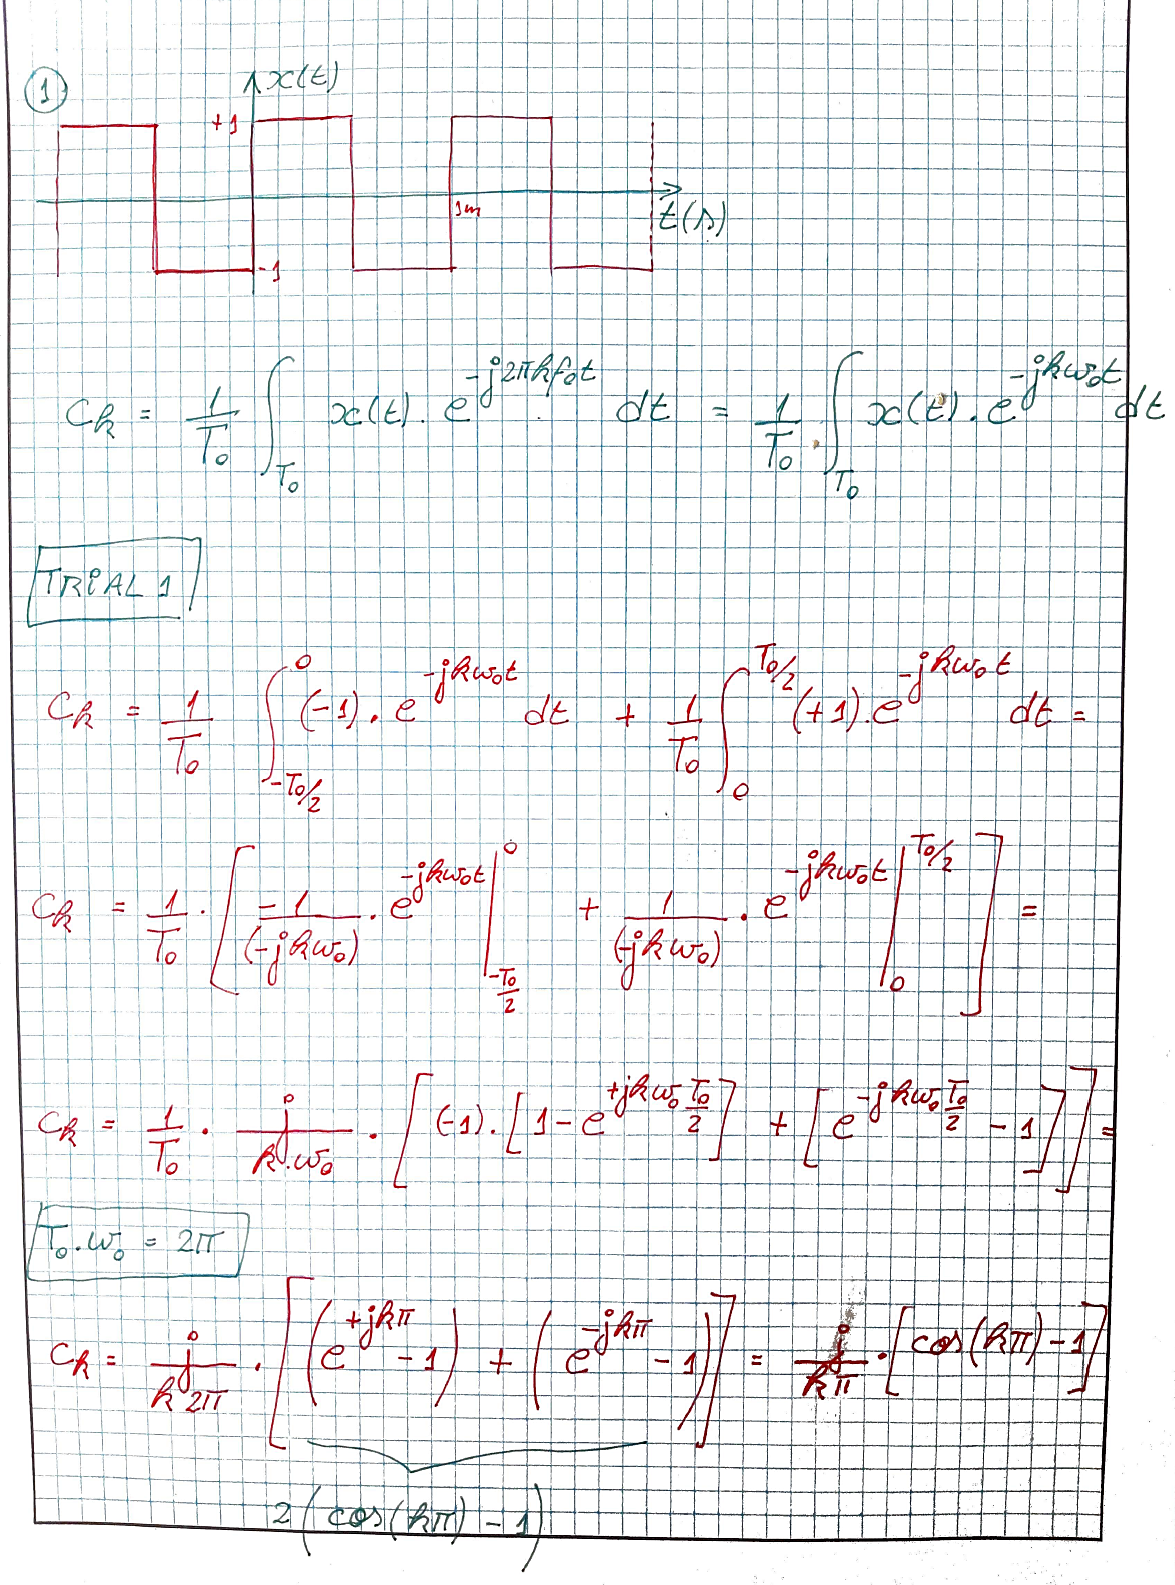 ① x(t)
+1
1m
t(s)
-1
C_k = 1/T₀ ∫_{T₀} x(t) . e^{-j2πkf₀t} dt = 1/T₀ . ∫_{T₀} x(t) . e^{-jkω₀t} dt
TRiAL 1
C_k = 1/T₀ ∫_{-T₀/2}^{0} (-1) . e^{-jkω₀t} dt + 1/T₀ ∫_{0}^{T₀/2} (+1) . e^{-jkω₀t} dt =
C_k = 1/T₀ . [ -1/(-jkω₀) . e^{-jkω₀t} |_{-T₀/2}^{0} + 1/(-jkω₀) . e^{-jkω₀t} |_{0}^{T₀/2} ] =
C_k = 1/T₀ . j/(k.ω₀) . [ (-1) . [1 - e^{+jkω₀ T₀/2}] + [e^{-jkω₀ T₀/2} - 1] ] =
T₀.ω₀ = 2π
C_k = j/(k2π) . [ (e^{+jkπ} - 1) + (e^{-jkπ} - 1) ] = j/(kπ) . [cos(kπ) - 1]
2(cos(kπ) - 1)